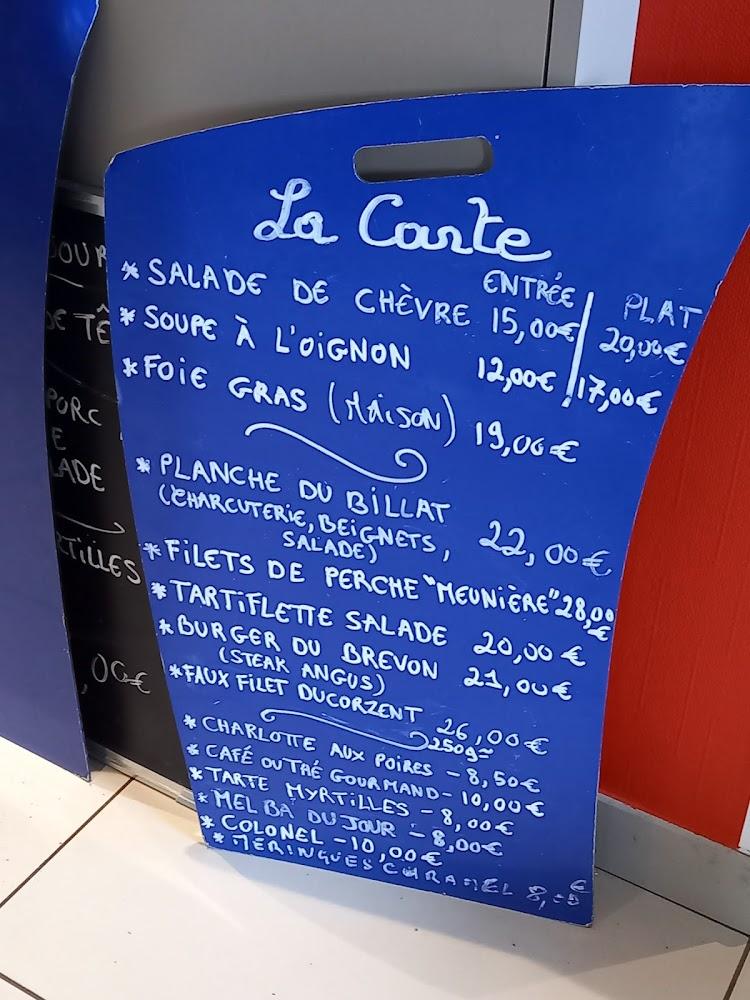 La Carte
ENTRÉE PLAT
* SALADE DE CHÈVRE 15,00€ 20,00€
* SOUPE À L'OIGNON 12,00€ 17,00€
* FOIE GRAS (MAISON) 19,00€
* PLANCHE DU BILLAT 22,00€
(CHARCUTERIE, BEIGNETS,
SALADE)
* FILETS DE PERCHE "MEUNIÈRE" 28,00€
* TARTIFLETTE SALADE 20,00€
* BURGER DU BREVON 21,00€
(STEAK ANGUS)
* FAUX FILET DUCORZENT 26,00€
250g
* CHARLOTTE AUX POIRES - 8,50€
* CAFÉ OU THÉ GOURMAND - 10,00€
* TARTE MYRTILLES - 8,00€
* MELBA DU JOUR - 8,00€
* COLONEL - 10,00€
* MERINGUES CARAMEL 8,00€
JOUR
DE TÊ
PORC
E
LADE
RTILLES
,00€